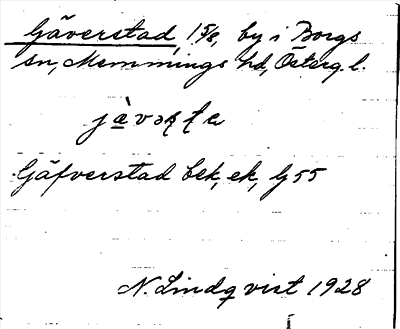 Gäverstad, 1 5/8, by i Borgs
sn, Memmings hd, Österg. l.
Gäfverstad bek, ek, G 55
N. Lindqvist 1928